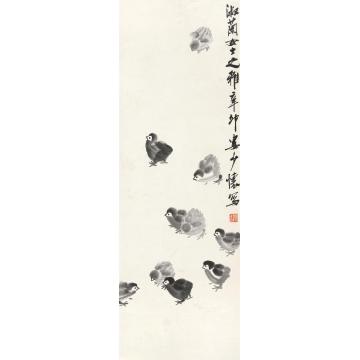 淑蘭女士之雅辛卯婁少懷寫